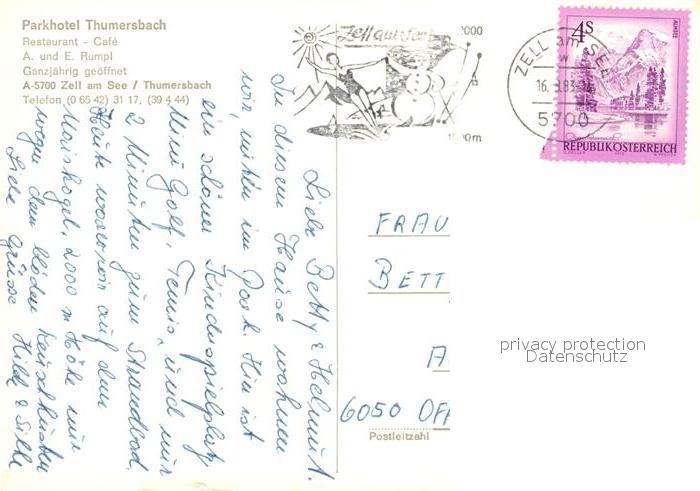 Parkhotel Thumersbach
Restaurant - Café
A. und E. Rumpl
Ganzjährig geöffnet
A-5700 Zell am See / Thumersbach
Telefon (0 65 42) 31 17, (39 4 44)
Zell am See
2000
m
ZELL am SEE
16. 83
5700
4S
ALMSEE
REPUBLIK ÖSTERREICH
Liebe Betty & Helmut.
In diesem Hause wohnen
wir, mitten im Park. Hier ist
ein schöner Kinderspielplatz
Mini Golf, Tennis, und nur
2 Minuten zum Strandbad.
Heute waren wir auf dem
2000 m Höhe nur
wegen dem blöden Keuschhusten
Liebe Grüsse Hilde &
FRAU
BETT
A
6050 OFF
Postleitzahl
privacy protection
Datenschutz